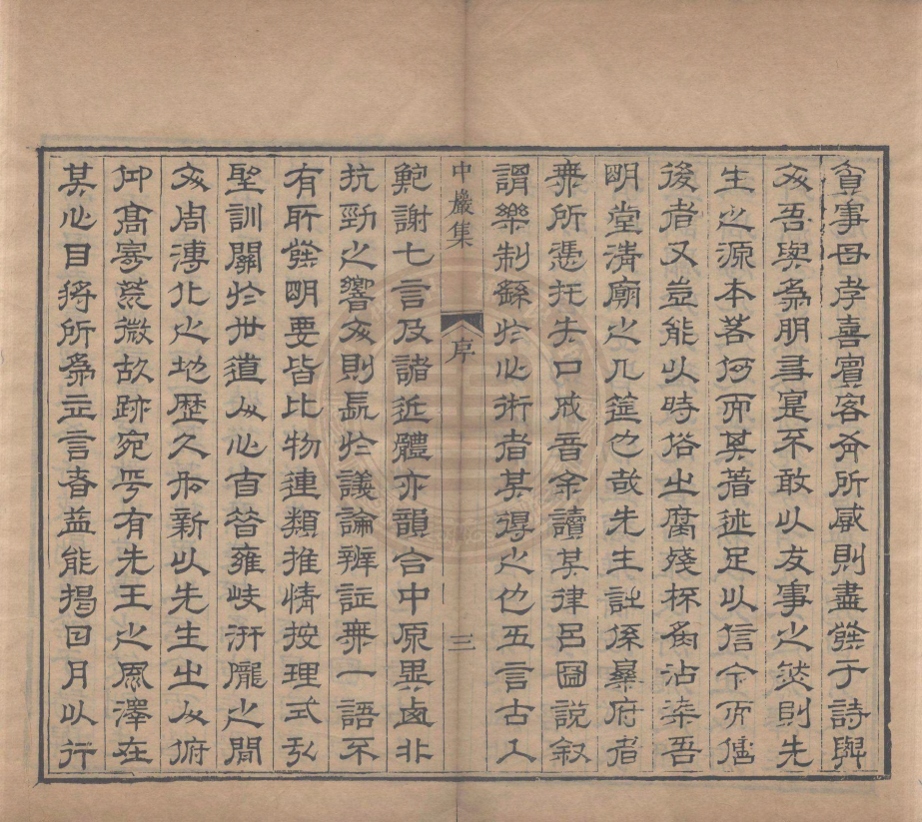 貧事母孝喜賓客所感則盡發于詩與
文吾與為朋寔不敢以友事之然則先
生之源本若何而其著述足以信今而傳
後者又豈能以時俗之腐殘杯沾染吾
明堂清廟之几筵也哉先生府者
無所憑托失口成音余讀其律呂圖說敘
謂樂制繇於心術者其得之也五言古入
鮑謝七言及諸近體亦韻合中原異鹵非
中巖集
序
三
抗勁之響文則長於議論辨証無一語不
有所發明要皆比物連類推情按理式弘
聖訓關於世道人心者昔雍岐汧隴之間
文周溥化之地歷久而新以先生之人俯
仰高騫荒微故跡宛乎有先王之恩澤在
其心目將所為立言者益能揭日月以行